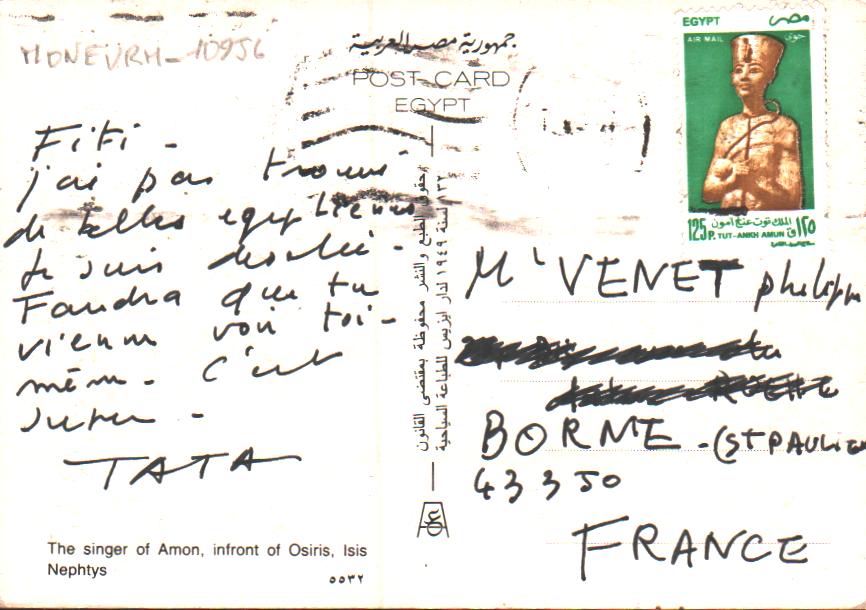 MONEVRM-10956
جمهورية مصر العربية
POST CARD
EGYPT
EGYPT مصر
AIR MAIL جوى
الملك توت عنخ آمون
125 P. TUT-ANKH AMUN ق ١٢٥
Fifi -
j'ai pas trouvé
de belles egyptiennes
Je suis desolé -
Faudra que tu
viennes voir toi-
même. C'est
super -
TATA
حقوق الطبع والنشر محفوظة بمقتضى القانون
١٣٢ لسنة ١٩٤٩ لدار ايزيس للطباعة السياحية
Mr VENET philippe
BORME - (ST PAULIEN
43350
FRANCE
The singer of Amon, infront of Osiris, Isis
Nephtys
٥٥٣٢